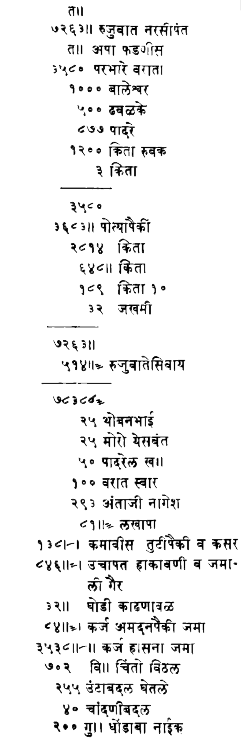 त॥
७२६३॥ रुजुवात नरसीपंत
त॥ अपा फडणीस
३५८० परभारे वराता
१००० बालेश्वर
५०० ढवळके
८७७ पादरे
१२०० किता रुबक
३ किता
३५८०
३६८३॥ पोत्यापैकीं
२८१४ किता
६४८॥ किता
१८९ किता १०
३२ जखमी
७२६३॥
५१४॥= रुजुवातेसिवाय
२५ थोबनभाई
२५ मोरो येसवंत
५० पादरेल ख॥
१०० वरात स्वार
२९३ अंताजी नागेश
८१॥= लखापा
१३८।-। कमावीस तुटीपैकी व कसर
८४६॥=। उचापत हाकाबणी व जमा-
ली गैर
३२॥ घोडी काढणावळ
८४॥=। कर्ज अमदनपैकी जमा
३५३८॥-॥ कर्ज हासना जमा
७०२ वि॥ चिंतो विठल
२५५ उंटाबदल घेतले
४० चांदणीबदल
२०० गु॥ धोंडाबा नाईक